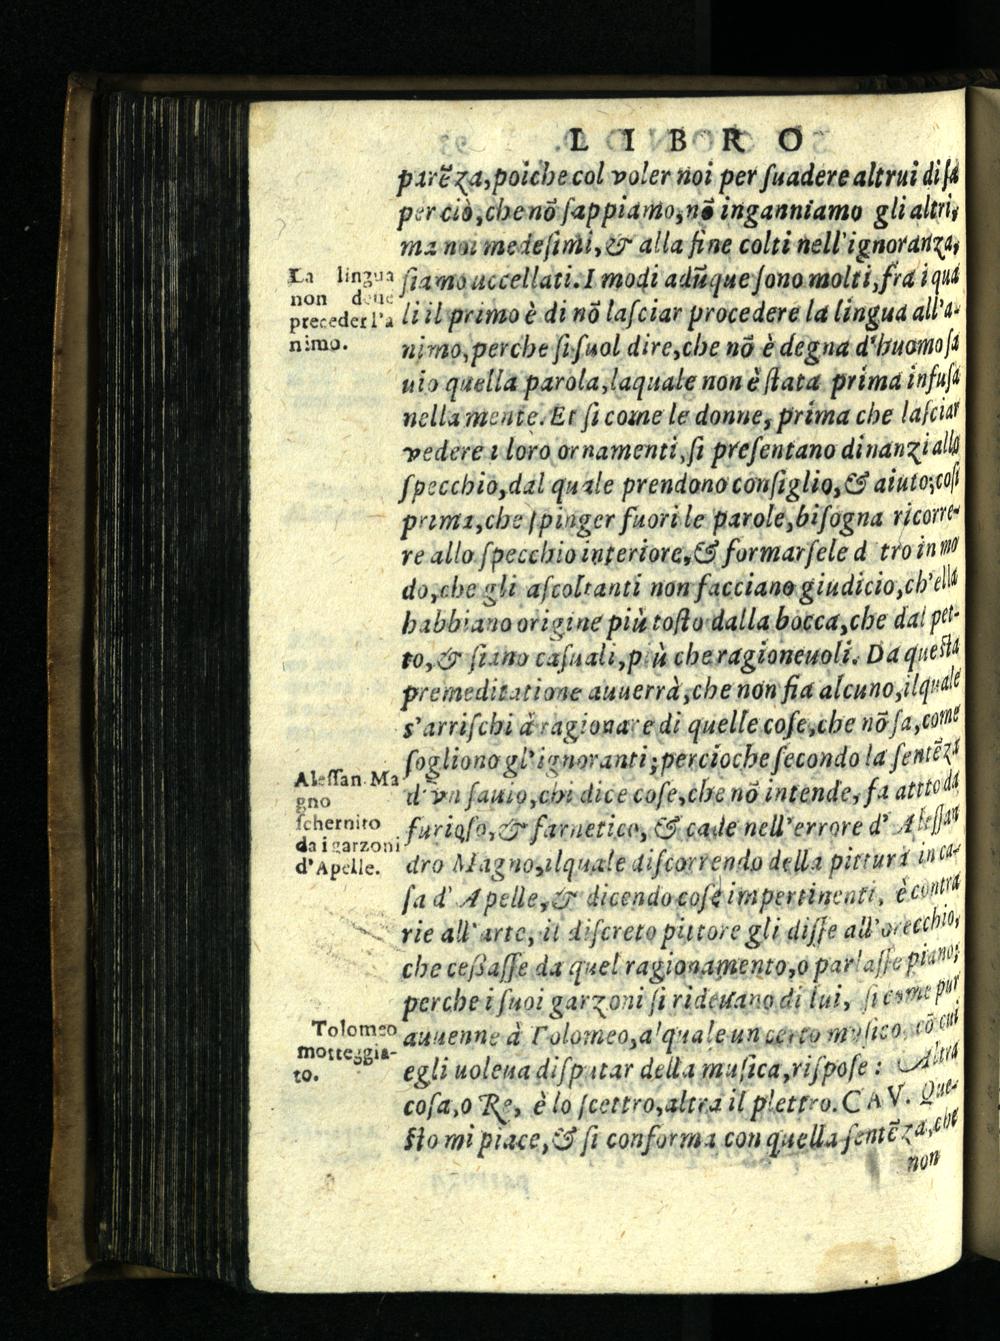 LIBRO
parẽza, poiche col voler noi persuadere altrui di sa
per ciò, che nõ sappiamo, nõ inganniamo gli altri,
ma noi medesimi, & alla fine colti nell'ignoranza,
siamo uccellati. I modi adũque sono molti, fra i qua
li il primo è di nõ lasciar procedere la lingua all'a-
nimo, perche si suol dire, che nõ è degna d'huomo sa
uio quella parola, laquale non è stata prima infusa
nella mente. Et si come le donne, prima che lasciar
vedere i loro ornamenti, si presentano dinanzi allo
specchio, dal quale prendono consiglio, & aiuto; cosi
prima, che spinger fuori le parole, bisogna ricorre-
re allo specchio interiore, & formarsele d tro in mo
do, che gli ascoltanti non facciano giudicio, ch'ella
habbiano origine più tosto dalla bocca, che dal pet-
to, & siano casuali, più che ragioneuoli. Da questa
premeditatione auuerrà, che non fia alcuno, ilquale
s'arrischi à ragionare di quelle cose, che nõ sa, come
sogliono gl'ignoranti; percioche secondo la sentẽza
d'vn sauio, chi dice cose, che nõ intende, fa attto da
furioso, & farnetico, & cade nell'errore d'Alessan
dro Magno, ilquale discorrendo della pittura in ca-
sa d'Apelle, & dicendo cose impertinenti, è contra
rie all'arte, il discreto pittore gli disse all'orecchio,
che ceßasse da quel ragionamento, o parlasse piano;
perche i suoi garzoni si rideuano di lui, si come pur
auuenne à Tolomeo, a'quale un certo musico, cõ cui
egli uoleua disputar della musica, rispose: Altra
cosa, o Re, è lo scettro, altra il plettro. CAV. Que-
sto mi piace, & si conforma con quella sentẽza, che
non
La lingua
non deue
preceder l'a
nimo.
Alessan. Ma
gno
schernito
da i garzoni
d'Apelle.
Tolomeo
motteggia-
to.